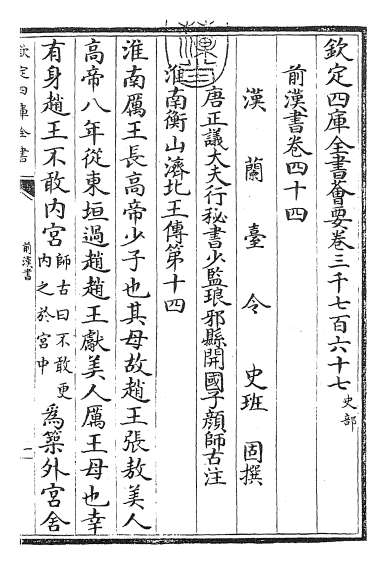 欽定四庫全書薈要卷三千七百六十七 史部
前漢書卷四十四
漢蘭臺令史班固撰
唐正議大夫行秘書少監琅邪縣開國子顏師古注
淮南衡山濟北王傳第十四
淮南厲王長高帝少子也其母故趙王張敖美人
高帝八年從東垣過趙趙王獻美人厲王母也幸
有身趙王不敢內宮師古曰不敢更內之於宮中為築外宮舍
欽定四庫全書
前漢書
一